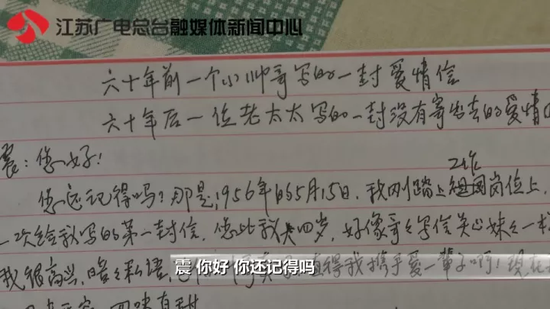 江苏广电总台融媒体新闻中心
六十年前一个小帅哥写的一封爱情信
六十年后一位老太太写的一封没有寄出去的爱情
震:您好!
工作
您还记得吗?那是1956年的5月15日,我刚踏上岗位上,
一次给我写的第一封信,您比我大四岁,好像哥哥写信关心妹妹一
我很高兴,暗暗私语,得我携手爱一辈子吗!现在
震 你好 你还记得吗
回味有甜